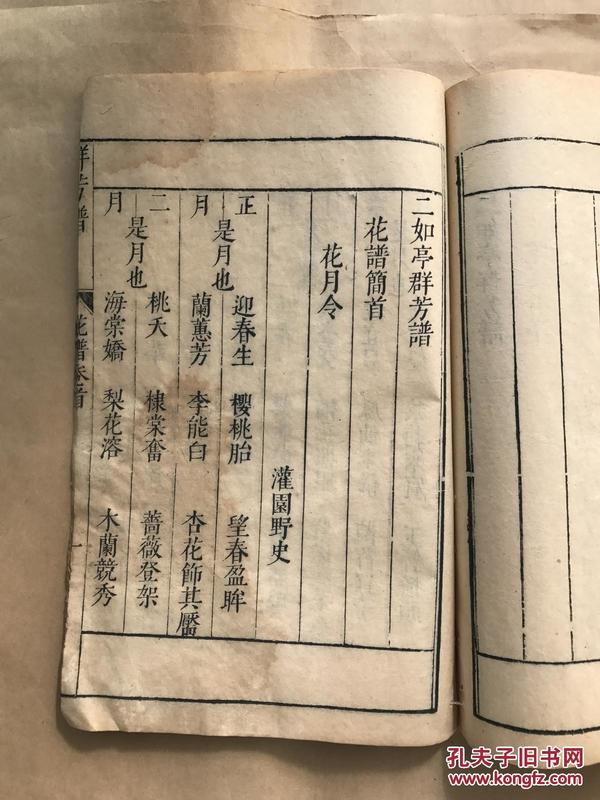 二如亭群芳譜
花譜簡首
花月令
灌園野史
正 迎春生 櫻桃胎 望春盈眸
是月也
月 蘭蕙芳 李能白 杏花飾其靨
二 桃夭 棣棠奮 薔薇登架
是月也
月 海棠嬌 梨花溶 木蘭競秀
群芳譜 花譜 首 一
孔夫子旧书网
www.kongfz.com